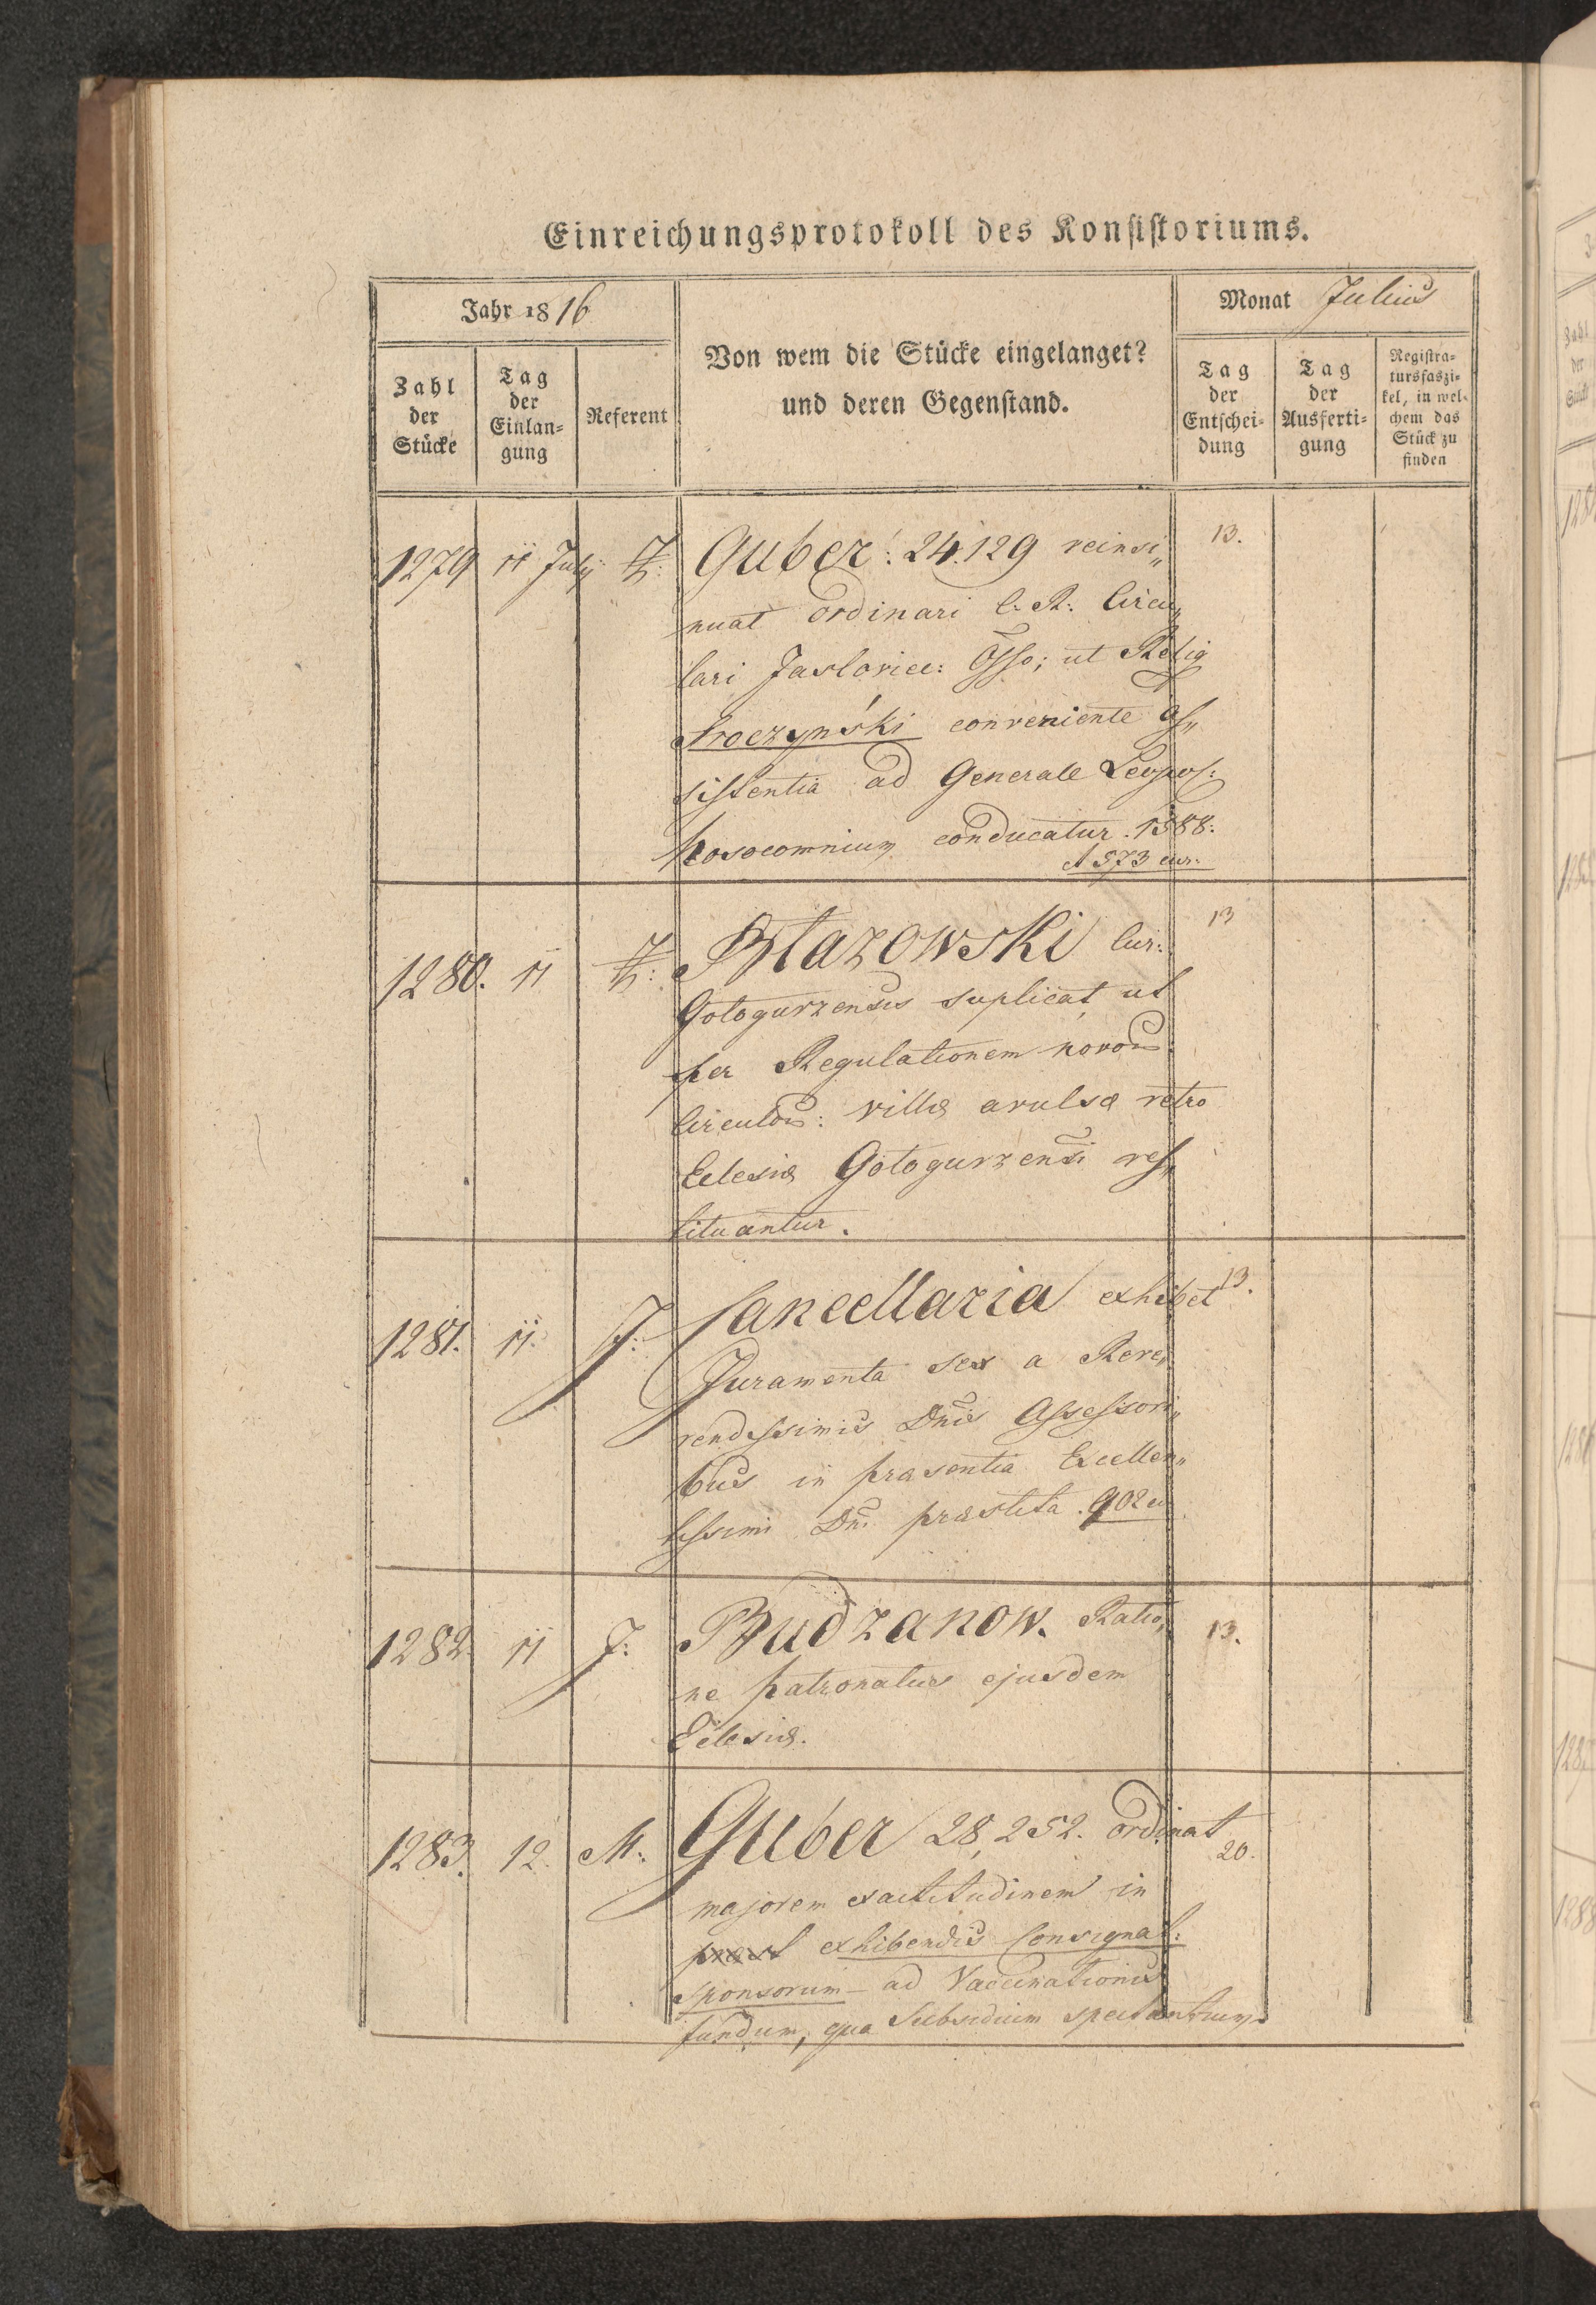 Einreichungsprotokoll des Konsistoriums.
Jahr 1816
Von wem die Stücke eingelanget?
und deren Gegenstand.
Monat Julius
Zahl
der
Stücke
Tag
der
Einlan=
gung
Referent
Tag
der
Entschei=
dung
Tag
der
Ausferti=
gung
Registra=
tursfaszi=
kel, in wel=
chem das
Stück zu
finden
1279 11 July Guber: 24.129 reinsi„ 13.
nuat ordinari C. R. Circu„
lari Jaslovice: Offo; ut Relig
Sroczyński conveniente as„
sistentia ad Generale Leopol:
Nosocomnium conducatur. 1388:
A 573 cur:
1280. 11 Błazowski Cur: 13
Gołogurzensis suplicat, ut
per Regulationem novor
Circulor: villæ avulsæ retro
Eclesiæ Gołogurzensi res„
tituantur.
1281. 11. J: Cancellaria exhibet 13.
Juramenta sex a Reve„
rendissimis Dnis Assessori„
bus in præsentia Excellen„
tissimi Dni præstita. 902 cu
1282. 11 J: Budzanow. Ratio„ 13.
ne patronatus ejusdem
Eclesiæ.
1283. 12. M. Guber 28,252. ordinat 20.
majorem exactitudinem in
exhibendis Consignat:
sponsorum ad Vaccinationis
fundum, qua Subsidium spectantium